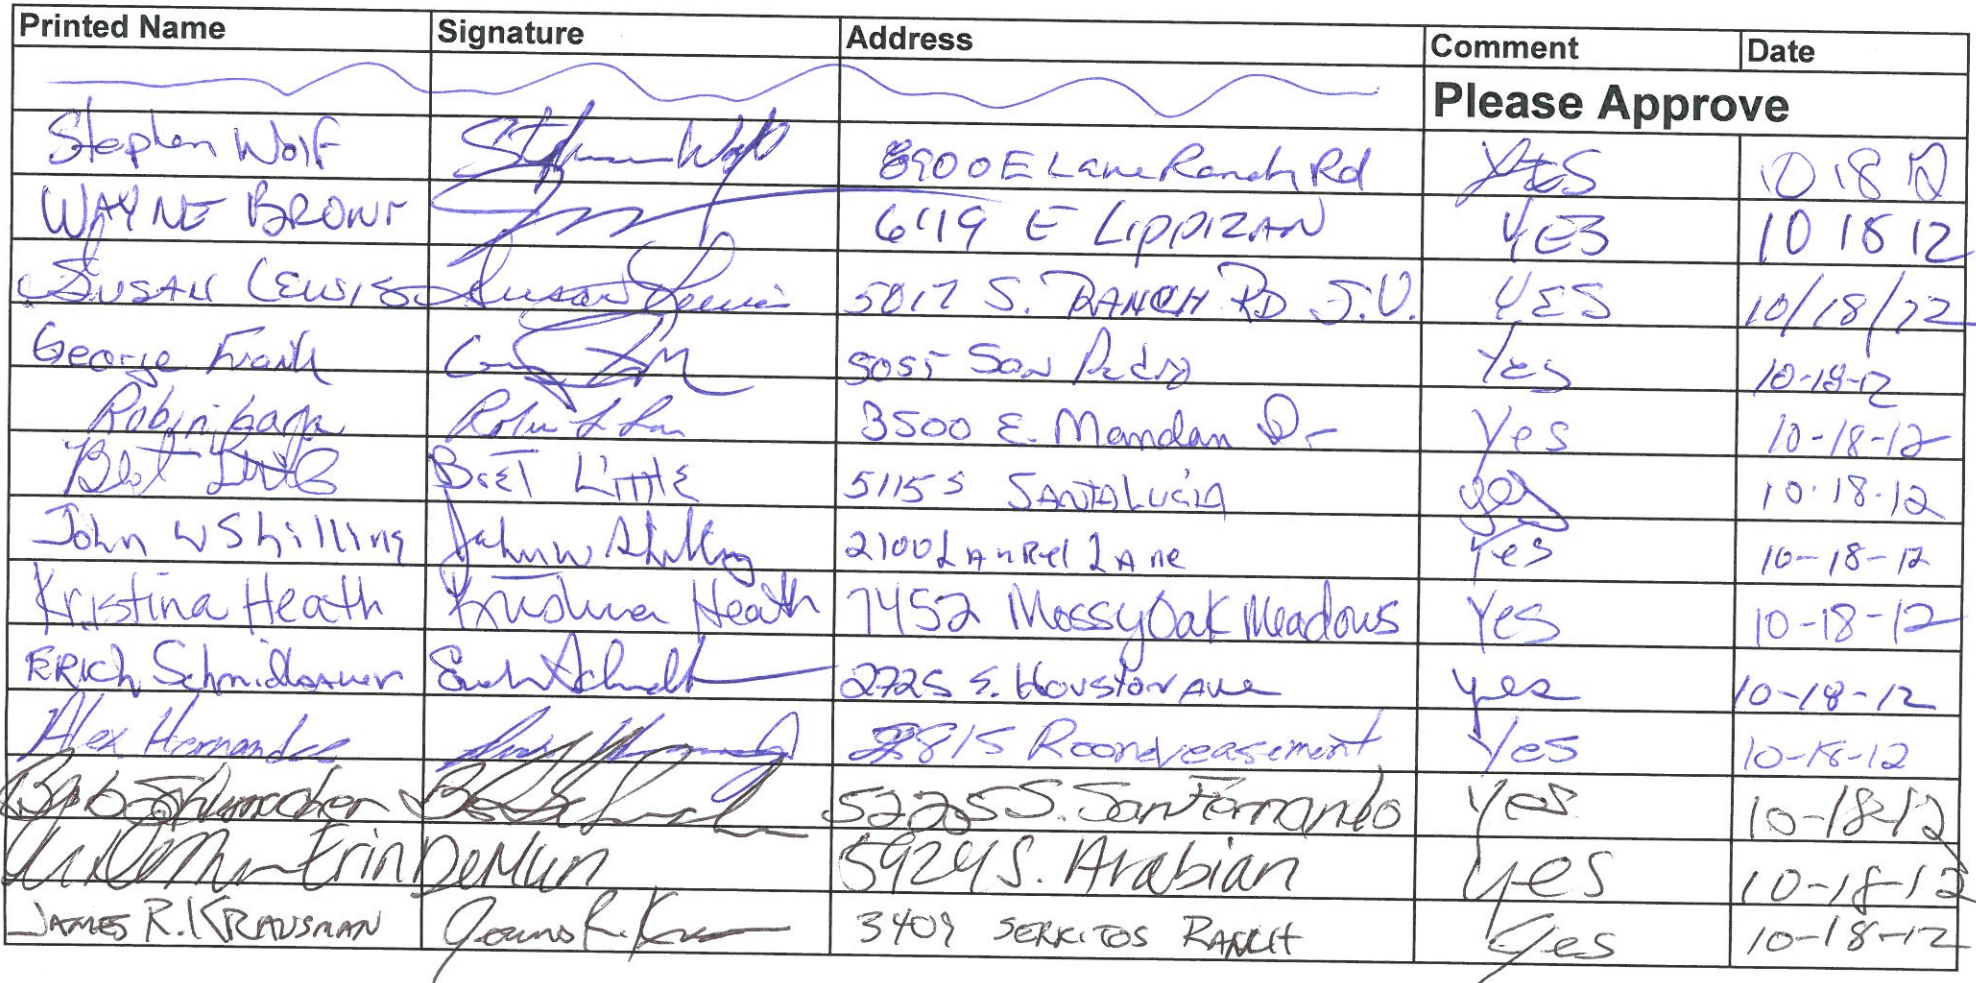 Printed Name Signature Address Comment Date
Please Approve
Stephen Wolf Stephen Wolf 8900 E Lane Ranch Rd Yes 10 18 12
WAYNE BROWN 6419 E LIPPIZAN YES 10 18 12
SUSAN LEWIS Susan Lewis 5017 S. RANCH RD S.V. YES 10/18/12
George Frank 5055 San Pedro Yes 10-18-12
Robin 3500 E. Mandan Dr Yes 10-18-12
Bret Little BRET LITTLE 5115 S SANTA LUCIA yes 10-18-12
John W Shilling John W Shilling 2100 LAuRel LAne Yes 10-18-12
Kristina Heath Kristina Heath 7452 Mossy Oak Meadows Yes 10-18-12
ERICh 2725 S. HOUSTON AVE yes 10-18-12
Alex Hernandez 8815 Yes 10-18-12
Bob Schumacher Bob Schumacher 5225 S. San Fernando Yes 10-18-12
Erin DeMun 5924 S. Arabian yes 10-18-12
JAMES R. KRAUSMAN James R. 3409 SERRITOS RANCH Yes 10-18-12